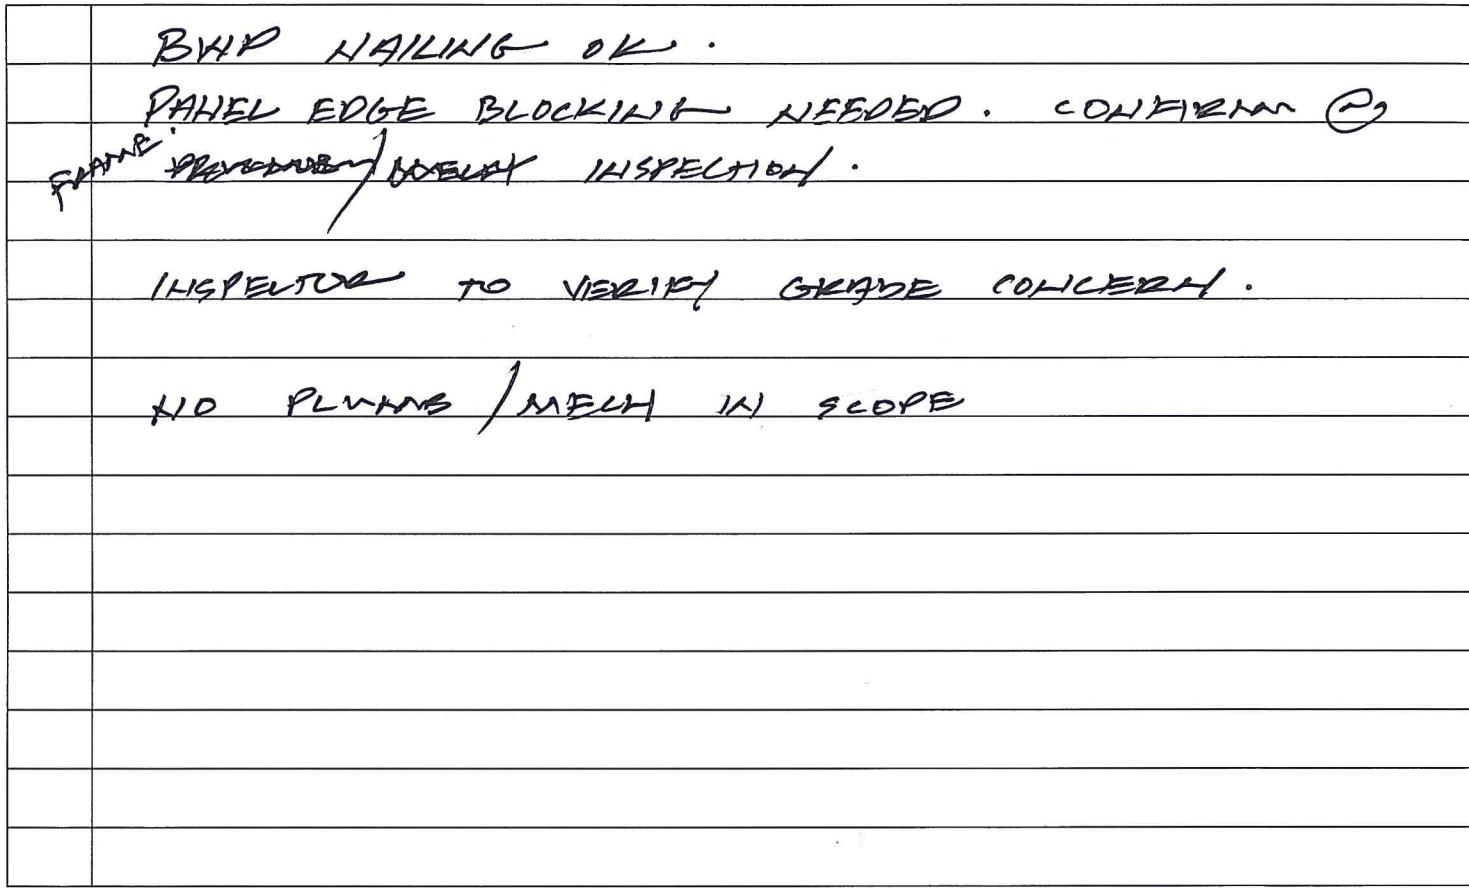 BWP NAILING OK.
PANEL EDGE BLOCKING NEEDED. CONFIRM @
FRAME / INSPECTION.
INSPECTOR TO VERIFY GRADE CONCERN.
NO PLUMB / MECH IN SCOPE